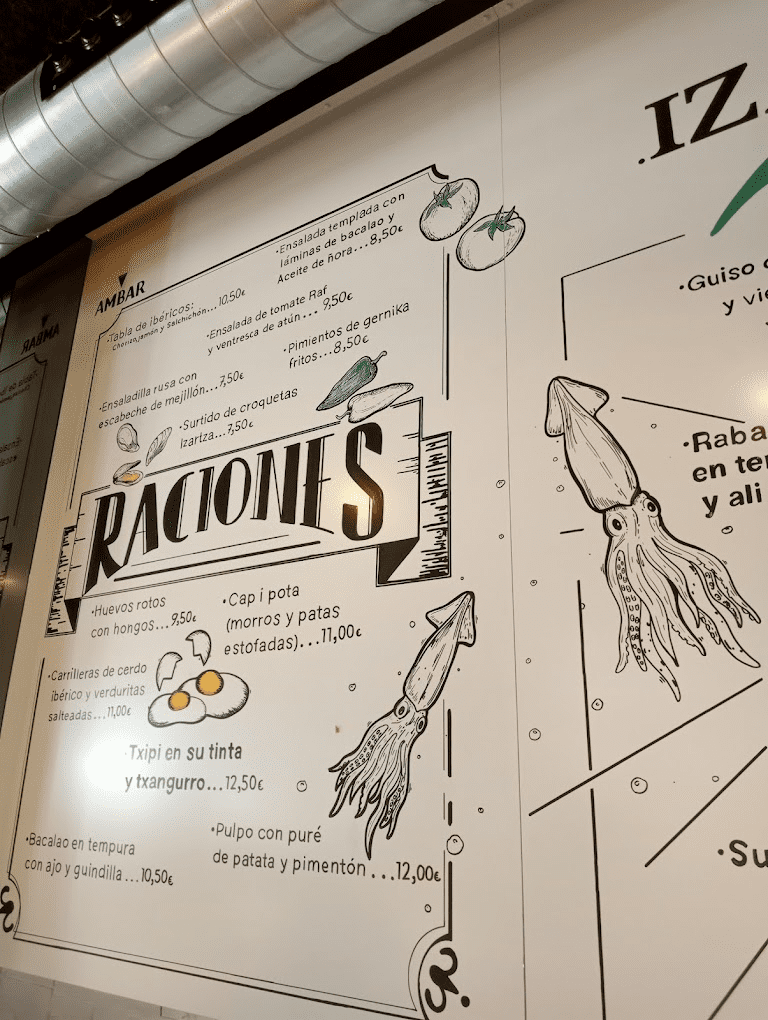 AMBAR
·Tabla de ibéricos:
Chorizo, jamón y Salchichón...10,50€
·Ensalada templada con
láminas de bacalao y
Aceite de ñora...8,50€
·Ensalada de tomate Raf
y ventresca de atún...9,50€
·Pimientos de gernika
fritos...8,50€
·Ensaladilla rusa con
escabeche de mejillón...7,50€
·Surtido de croquetas
Izartza...7,50€
RACIONES
·Huevos rotos
con hongos...9,50€
·Cap i pota
(morros y patas
estofadas)...11,00€
·Carrilleras de cerdo
ibérico y verduritas
salteadas...11,00€
·Txipi en su tinta
y txangurro...12,50€
·Bacalao en tempura
con ajo y guindilla...10,50€
·Pulpo con puré
de patata y pimentón...12,00€
.IZ
·Guiso
y
·Raba
en te
y ali
·Su
AMBAR